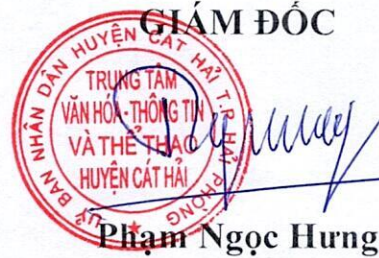 GIÁM ĐỐC
ỦY BAN NHÂN DÂN HUYỆN CÁT HẢI T.P. HẢI PHÒNG
TRUNG TÂM
VĂN HÓA - THÔNG TIN
VÀ THỂ THAO
HUYỆN CÁT HẢI
Phạm Ngọc Hưng